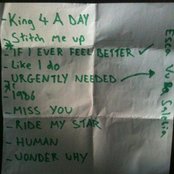 - King 4 A DAY
* Stitch me up
- IF I EVER FEEL BETTER ✓
- Like I do
- URGENTLY NEEDED →
* 1986
- MISS YOU
- RIDE MY STAR
- HUMAN
- WONDER WHY